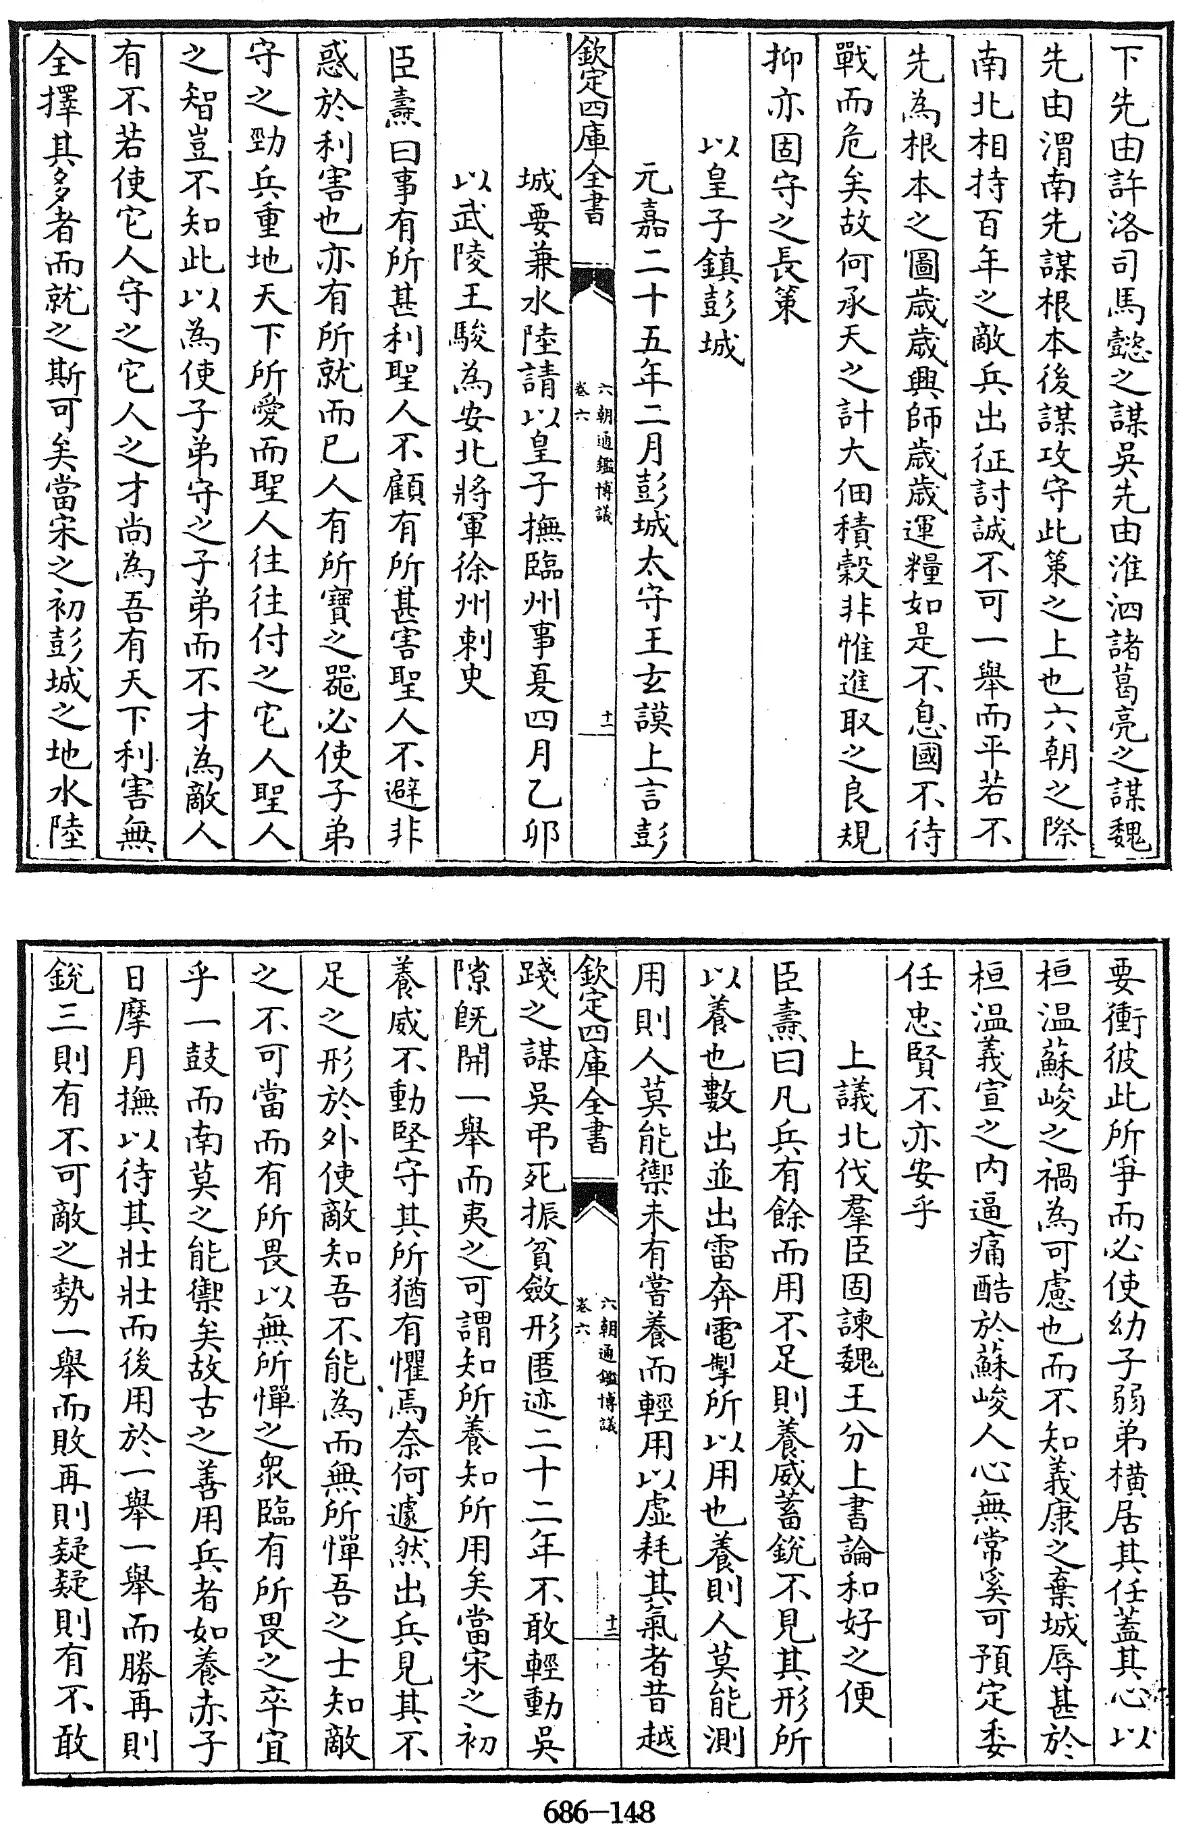 下先由許洛司馬懿之謀吳先由淮泗諸葛亮之謀魏
先由渭南先謀根本後謀攻守此策之上也六朝之際
南北相持百年之敵兵出征討誠不可一舉而平若不
先為根本之圖歲歲興師歲歲運糧如是不息國不待
戰而危矣故何承天之計大佃積穀非惟進取之良規
抑亦固守之長策
以皇子鎮彭城
元嘉二十五年二月彭城太守王玄謨上言彭
欽定四庫全書
六朝通鑑博議
卷六
十一
城要兼水陸請以皇子撫臨州事夏四月乙卯
以武陵王駿為安北將軍徐州刺史
臣燾曰事有所甚利聖人不顧有所甚害聖人不避非
惑於利害也亦有所就而已人有所寶之器必使子弟
守之勁兵重地天下所愛而聖人往往付之它人聖人
之智豈不知此以為使子弟守之子弟而不才為敵人
有不若使它人守之它人之才尚為吾有天下利害無
全擇其多者而就之斯可矣當宋之初彭城之地水陸
要衝彼此所爭而必使幼子弱弟橫居其任蓋其心以
桓溫蘇峻之禍為可慮也而不知義康之棄城辱甚於
桓溫義宣之內逼痛酷於蘇峻人心無常奚可預定委
任忠賢不亦安乎
上議北伐羣臣固諫魏王分上書論和好之便
臣燾曰凡兵有餘而用不足則養威蓄銳不見其形所
以養也數出並出雷奔電掣所以用也養則人莫能測
用則人莫能禦未有嘗養而輕用以虛耗其氣者昔越
欽定四庫全書
六朝通鑑博議
卷六
十二
踐之謀吳弔死振貧斂形匿迹二十二年不敢輕動吳
隙既開一舉而夷之可謂知所養知所用矣當宋之初
養威不動堅守其所猶有懼焉奈何遽然出兵見其不
足之形於外使敵知吾不能為而無所憚吾之士知敵
之不可當而有所畏以無所憚之衆臨有所畏之卒宜
乎一鼓而南莫之能禦矣故古之善用兵者如養赤子
日摩月撫以待其壯壯而後用於一舉一舉而勝再則
銳三則有不可敵之勢一舉而敗再則疑疑則有不敢
686-148